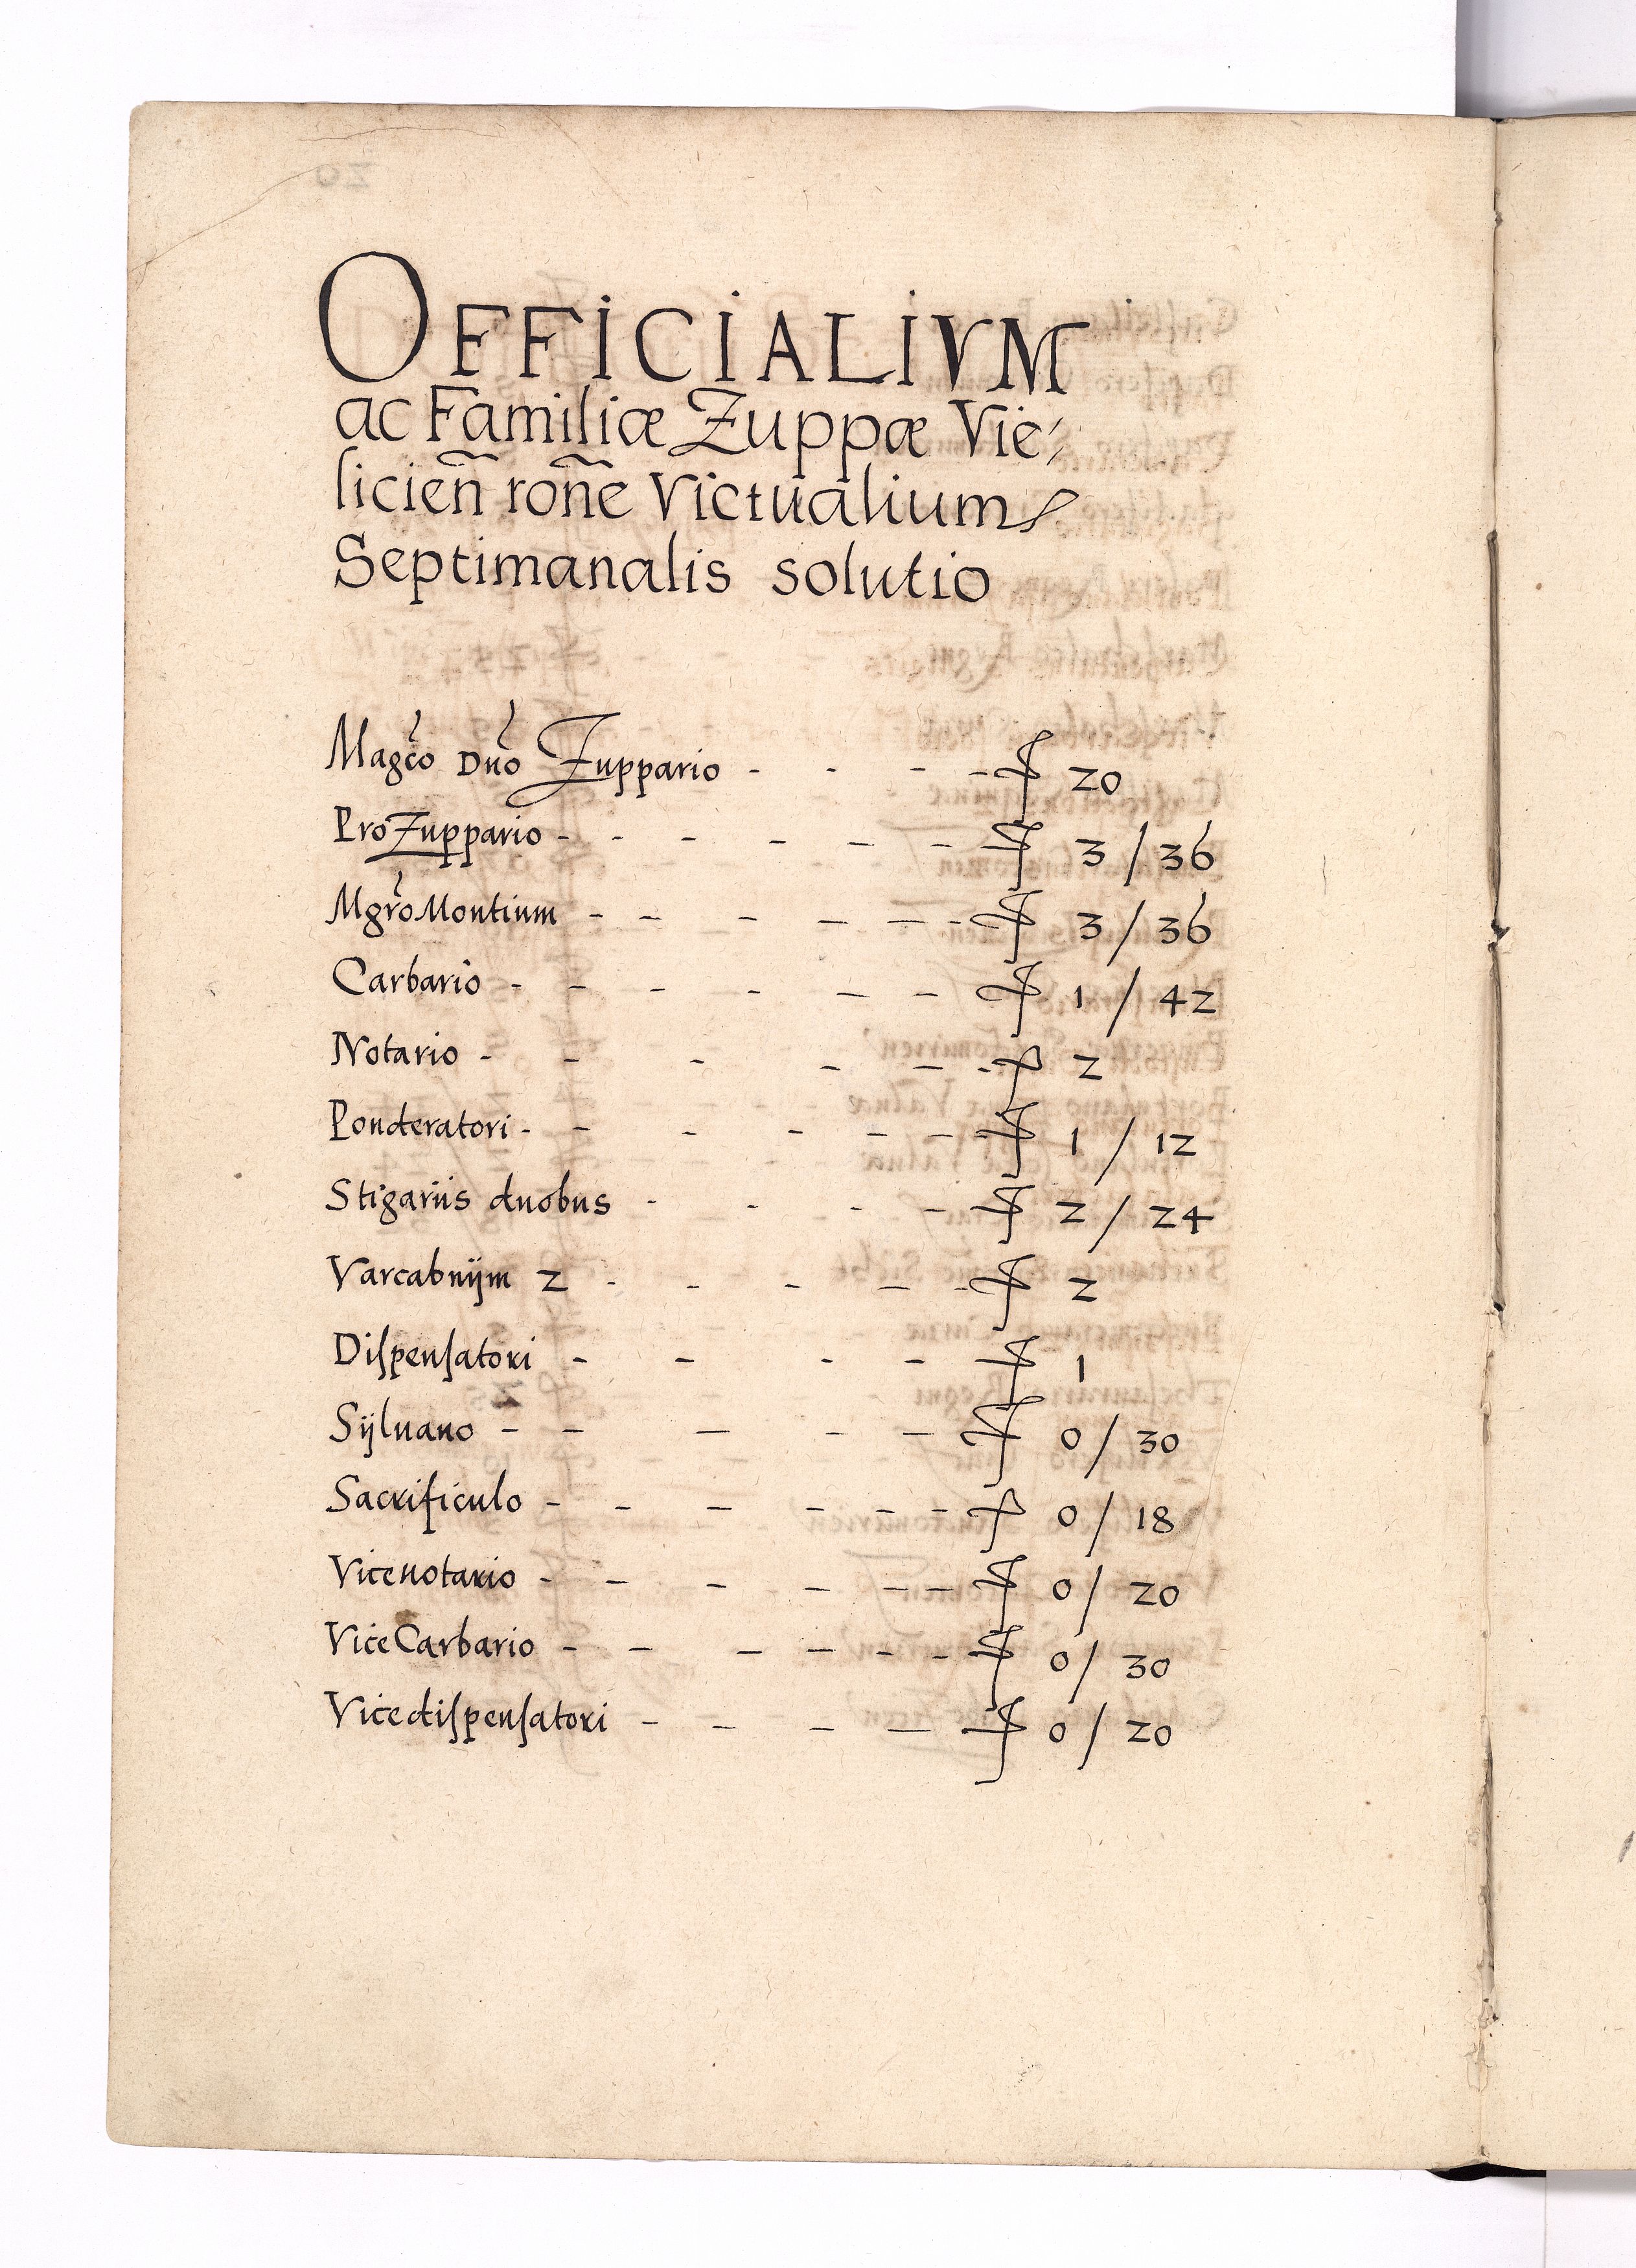 OFFICIALIVM
ac Familiæ Zuppæ Vie/
licien̄ ron̄e Victualium
Septimanalis solutio
Magc̃o Dño Zuppario - - - - ƒ 20
ProZuppario - - - - - - ƒ 3 / 36
Mgr̃o Montium - - - - - - ƒ 3 / 36
Carbario - - - - - - ƒ 1 / 42
Notario - - - - - - ƒ 2
Ponderatori - - - - - - ƒ 1 / 12
Stigariis duobus - - - - ƒ 2 / 24
Varcabnijm 2 - - - - - ƒ 2
Diſpenſatori - - - - ƒ 1
Sijluano - - - - - ƒ 0 / 30
Sacrificulo - - - - - - ƒ 0 / 18
Vicenotario - - - - - - ƒ 0 / 20
ViceCarbario - - - - - - ƒ 0 / 30
Vicediſpenſatori - - - - ƒ 0 / 20